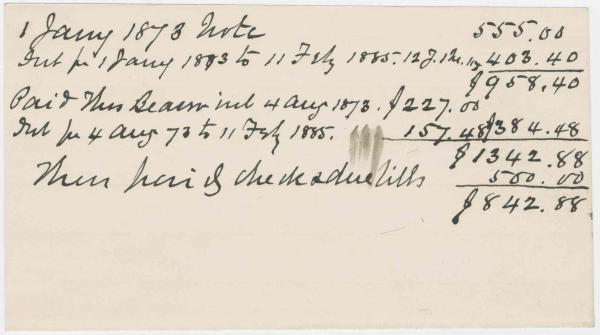 1 Jany 1873 Note 555.00
Int fr 1 Jany 1873 to 11 Feby 1885. 12 J. 1 M. 11 403.40
$958.40
Paid Thos 4 Aug 1873. $227.00
Int fr 4 Aug 73 to 11 Feby 1885. 157.48 $384.48
$1342.88
Then paid check & due bills 500.00
$842.88